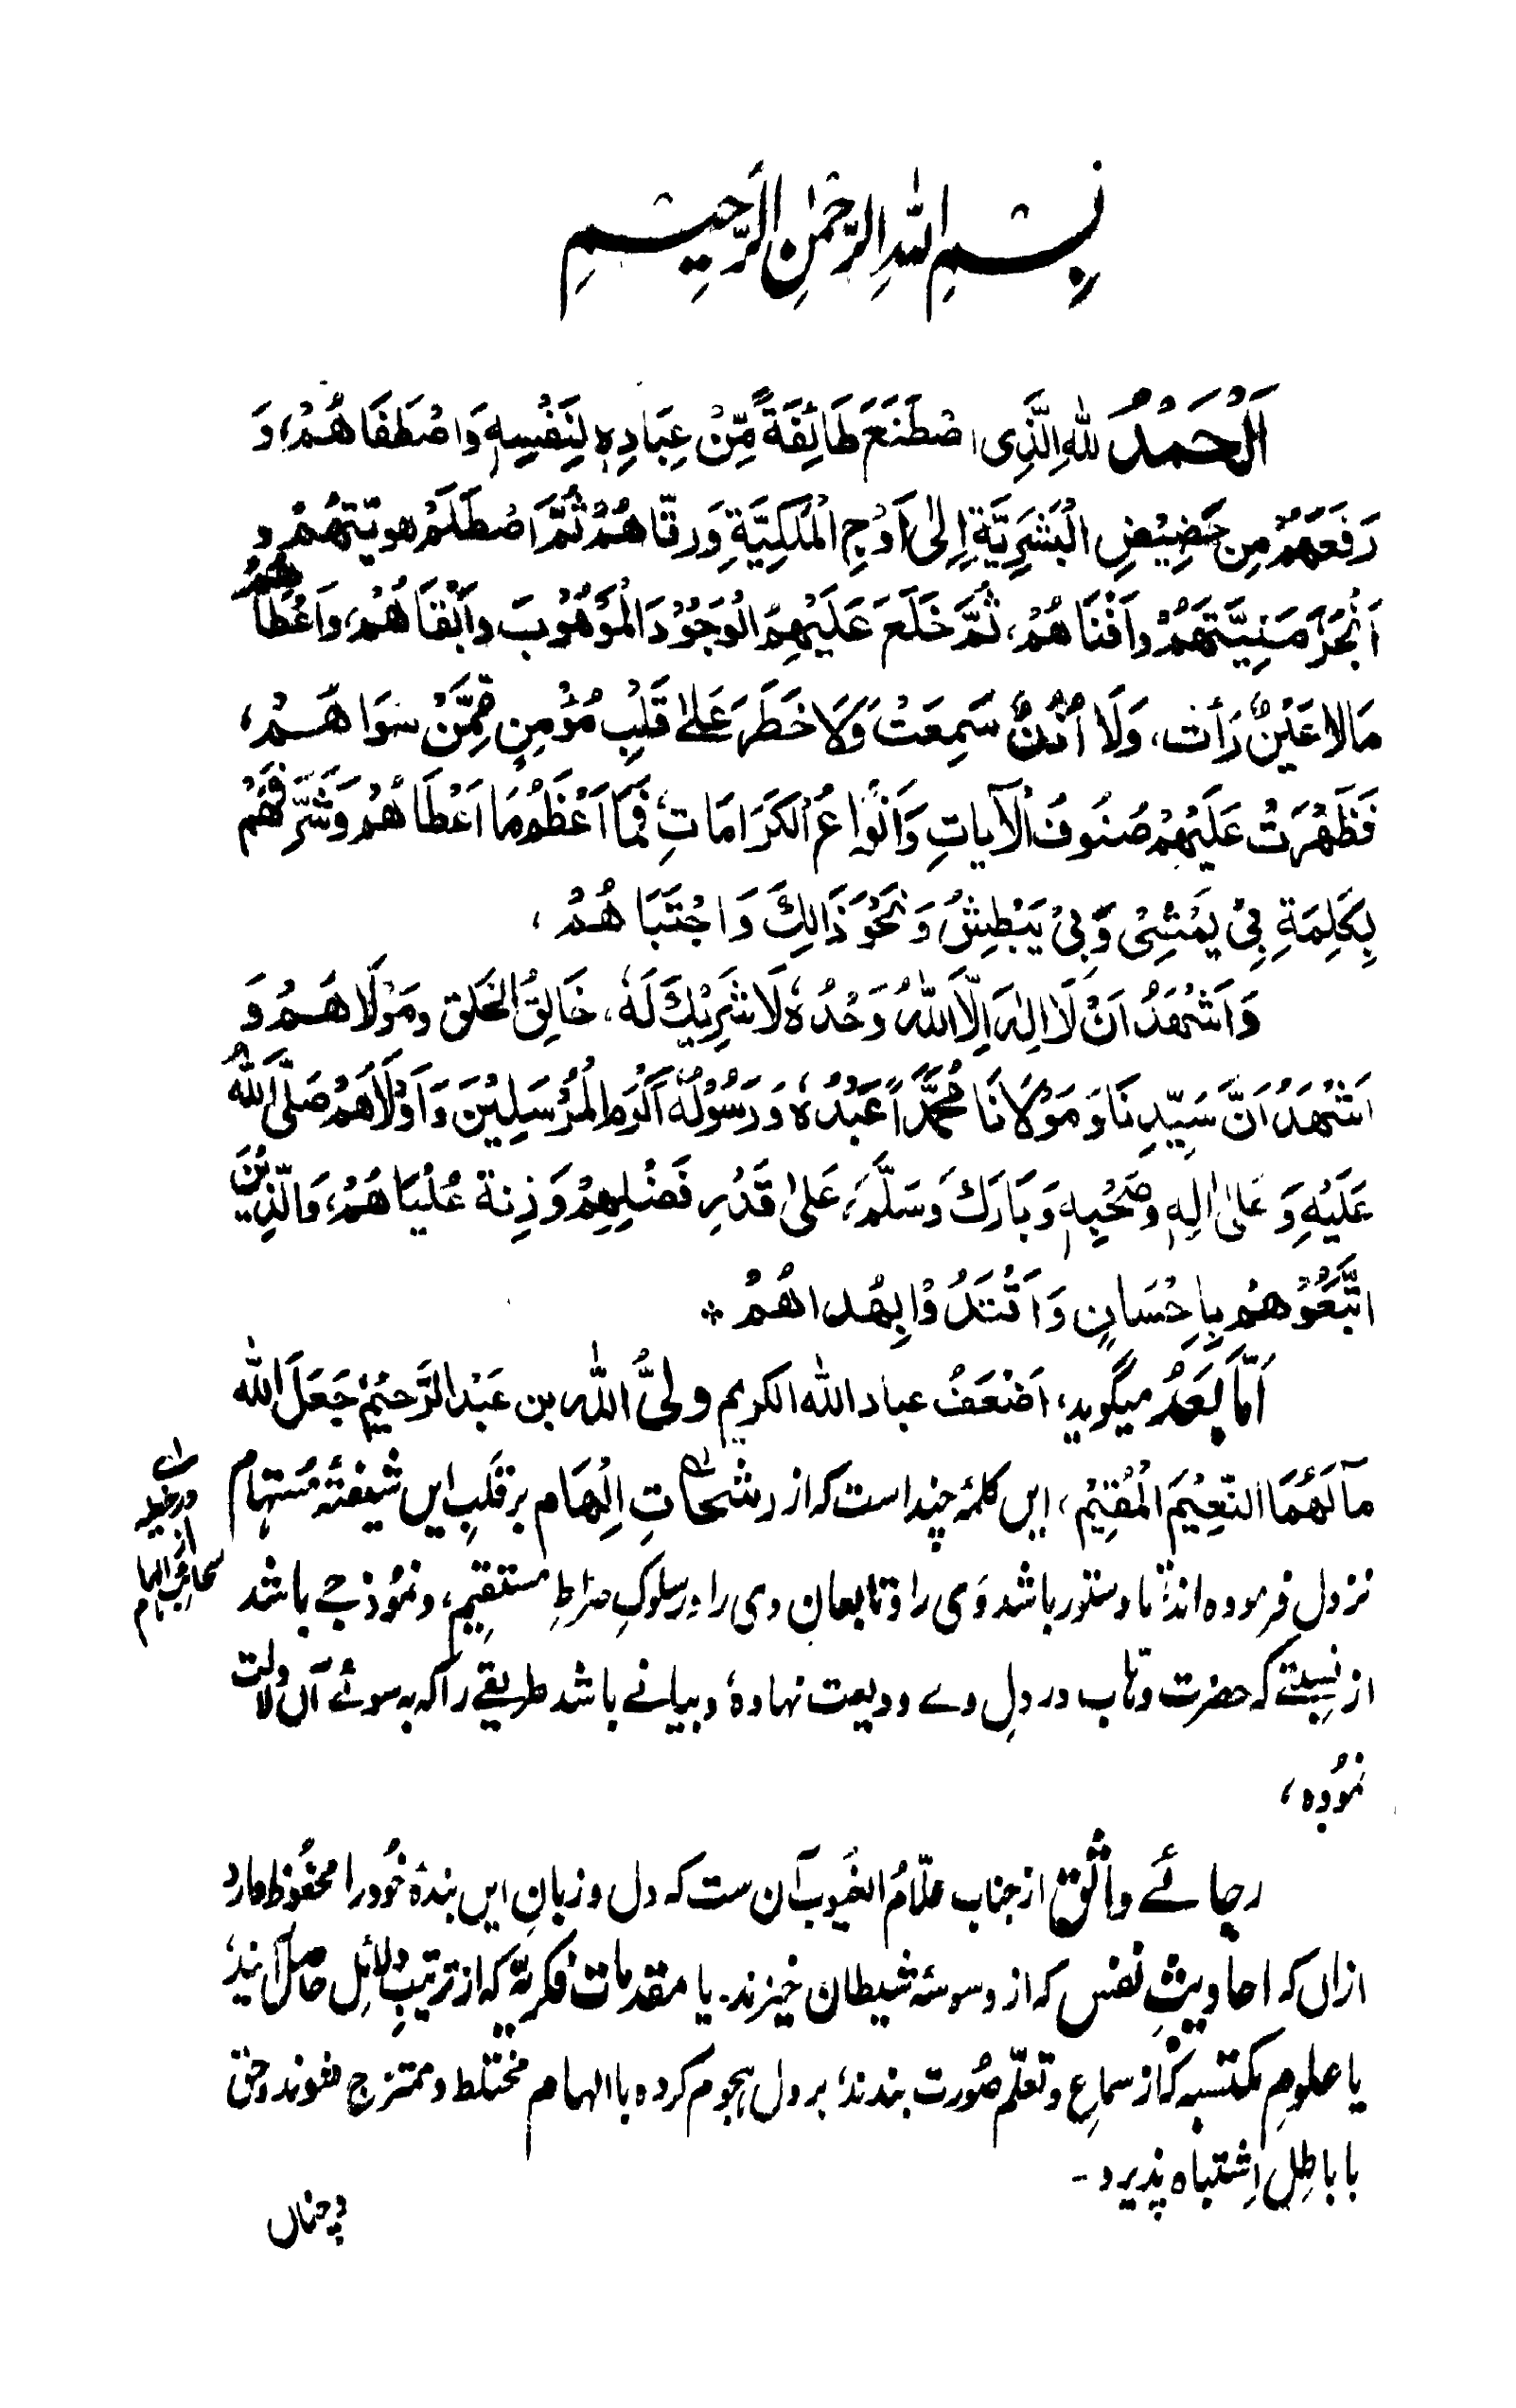 بِسْمِ اللّٰهِ الرَّحْمٰنِ الرَّحِيْمِ
اَلْحَمْدُ لِلّٰهِ الَّذِى اصْطَنَعَ طَائِفَةً مِّنْ عِبَادِهٖ لِنَفْسِهٖ وَاصْطَفَاهُمْ، وَ
رَفَعَهُمْ مِن حَضِيْضِ الْبَشَرِيَّةِ اِلٰى اَوْجِ الْمَلَكِيَّةِ وَرقّاهُمْ ثُمَّ اصْطَلَمَ هويّتهُمْ و
اَنْجَزَ مَنِيَّتَهُمْ وافْنَاهُمْ، ثُمَّ خَلَعَ عَلَيْهِمُ الْوُجُوْدَ الْمَوْهُوْبَ وابْقَاهُمْ، وَاَعْطَاهُمْ
مَالا عَيْنٌ رَأت، وَلَا اُذُنٌ سَمِعَتْ وَلَا خَطَرَ عَلٰى قَلْبِ مُؤْمِنٍ مِّمَّنْ سِوَاهُمْ،
فَظَهَرَتْ عَلَيْهِمْ صُنُوفُ الْآياتِ وَاَنْوَاعُ الْكَرَامَاتِ، فَمَا اَعْظَمُ مَا اَعْطَاهُمْ وَشَرَّفَهُمْ
بِكَلِمَةِ بِىْ يَمْشِىْ وَبِىْ يَبْطِشُ وَنَحْوَ ذَالِكَ وَاجْتَبَاهُمْ،
وَاَشْهَدُ اَنْ لَا اِلٰهَ اِلَّا اللّٰهُ وَحْدُهٗ لَا شَرِيْكَ لَهٗ، خَالِقُ الخَلق ومَوْلَاهُمْ وَ
اَشْهَدُ اَنَّ سَيِّدِنَا وَمَوْلَانَا مُحَمَّداً عَبْدُهٗ وَرَسُوْلُهٗ اَكْرَم الْمُرْسَلِيْنَ وَاَوْلَاهُمْ صَلَّى اللّٰهُ
عَلَيْهِ وَعَلٰى اٰلِهٖ وصَحْبِهٖ وَبَارَكَ وَسَلَّمَ، عَلٰى قَدْرِ فَضْلِهِمْ وَزِنة عُلْيَاهُمْ، وَالَّذِيْنَ
اتَّبَعُوْهُمْ بِاِحْسَانٍ وَاقْتَدُوْا بِهُداهُمْ *
اَمَّا بَعَدُ میگوید، اَضْعَفُ عباد الله الكريم ولىُّ اللّٰه بن عَبْد الرَّحيمْ جَعَلَ الله
مآلَهُمَا النَّعِيْمَ الْمُقِيْمْ، ایں کلمۂ چند است کہ از رشحاتِ اِلْهَام بر قلبِ ایں شیفتۂ مُستہام
نزول فرمودہ اند، تا دستور باشد وَی را و تابعان وی را در سلوکِ صِرَاطِ مستقیم، و نموذجے باشد
از نسبتے کہ حضرت وہّاب در دلِ وے ودیعت نہادہ، و بیانے باشد طریقے را کہ بہ سوئے آں دلالت
نمُودہ،
رجائے واثق از جناب علّامُ الغیوب آن ست کہ دل و زبانِ ایں بندۂ خُود را محفُوظ دارد
ازاں کہ احادیثِ نفس کہ از وسوسۂ شیطان خیزند۔ یا مقدمات فکریّہ کہ از ترتیبِ دلائل حاصل آیند،
یا علومِ مکتسبہ کہ از سماعِ و تعلّم صُورت بندند، بر دل ہجوم کردہ با الہام مختلط و ممتزج شوند و حق
با باطِل اِشتباہ پذیرد۔
و چناں